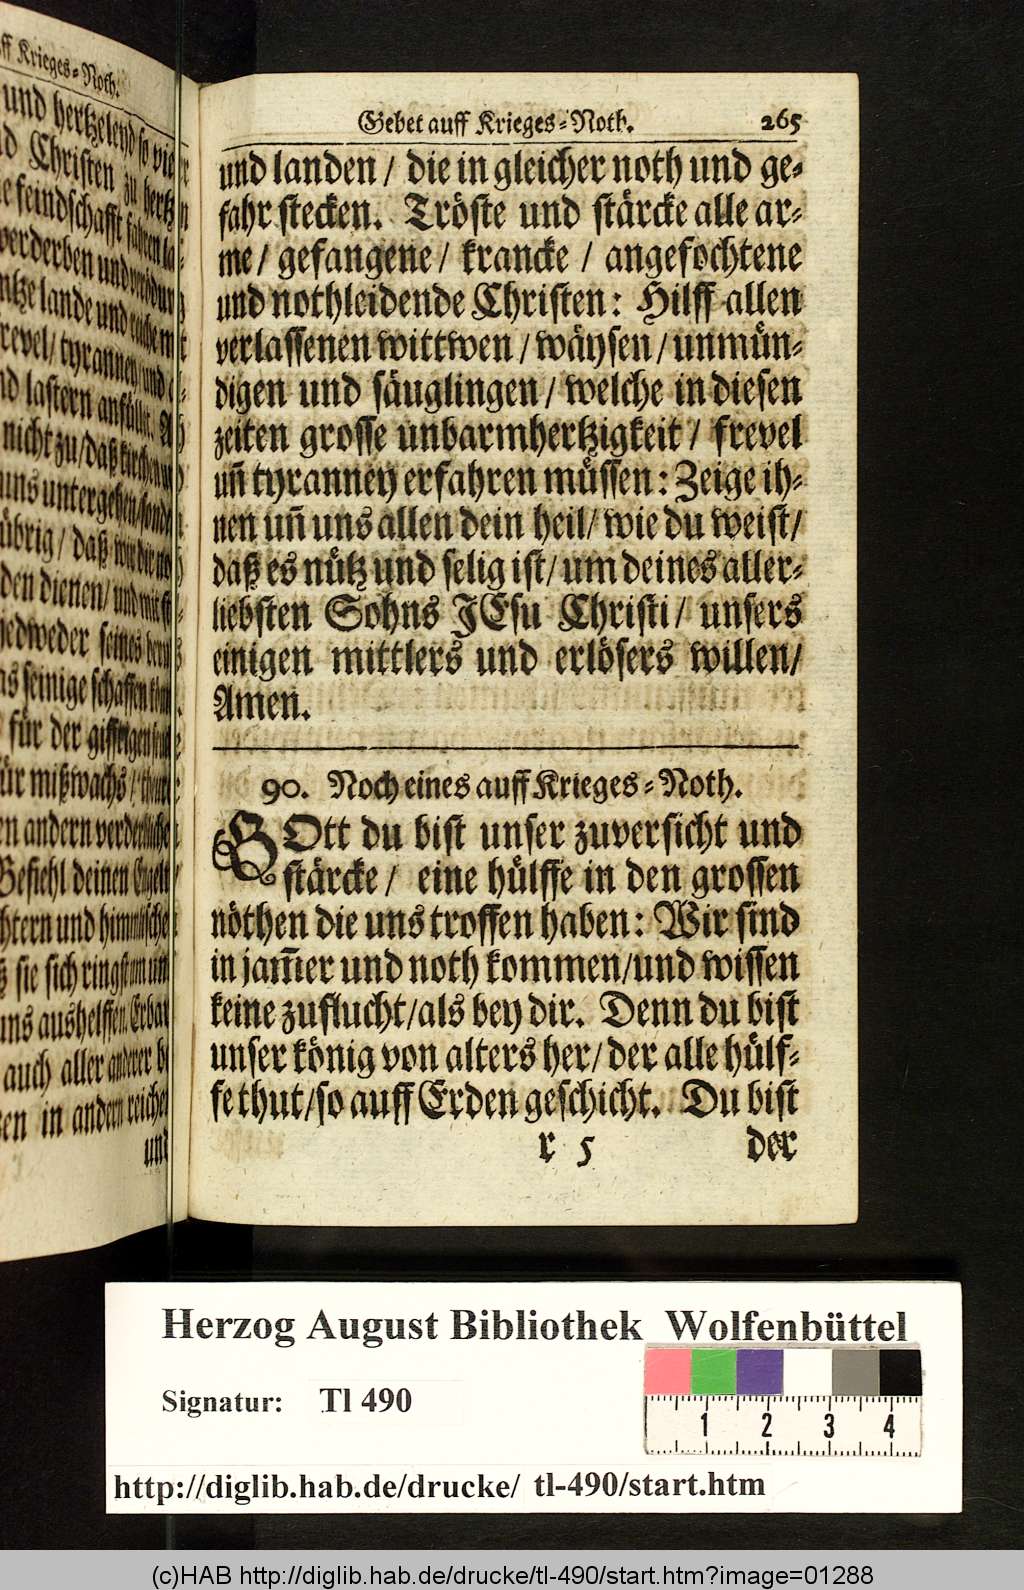 ff Krieges-Noth.
und hertzeleyd so vie
d Christen zu hertz
e feindschafft fahren la
verderben und
ntze lande und rache m
revel/ tyranney/ und
nd lastern anfülle. A
nicht zu/ daß kirchen
uns untergehen/ sonde
übrig/ daß wir die no
den dienen/ und mit
jedweder seines beru
ns seinige schaffen
für der gifftigen
ür mißwachs/
en andern verderbliche
Befiehl deinen Engeln
chtern und himmlische
ß sie sich rings um
uns aushelffen. Erba
auch aller anderer
en in andern reiche
und
Gebet auff Krieges-Noth. 265
und landen/ die in gleicher noth und ge-
fahr stecken. Tröste und stärcke alle ar-
me/ gefangene/ krancke/ angefochtene
und nothleidende Christen: Hilff allen
verlassenen wittwen/ wäysen/ unmün-
digen und säuglingen/ welche in diesen
zeiten grosse unbarmhertzigkeit/ frevel
uñ tyranney erfahren müssen: Zeige ih-
nen uñ uns allen dein heil/ wie du weist/
daß es nütz und selig ist/ um deines aller-
liebsten Sohns JEsu Christi/ unsers
einigen mittlers und erlösers willen/
Amen.
90. Noch eines auff Krieges-Noth.
GOtt du bist unser zuversicht und
stärcke/ eine hülffe in den grossen
nöthen die uns troffen haben: Wir sind
in jam̃er und noth kommen/ und wissen
keine zuflucht/ als bey dir. Denn du bist
unser könig von alters her/ der alle hülf-
fe thut/ so auff Erden geschicht. Du bist
r 5 der
Herzog August Bibliothek Wolfenbüttel
Signatur: Tl 490
1 2 3 4
http://diglib.hab.de/drucke/ tl-490/start.htm
(c)HAB http://diglib.hab.de/drucke/tl-490/start.htm?image=01288